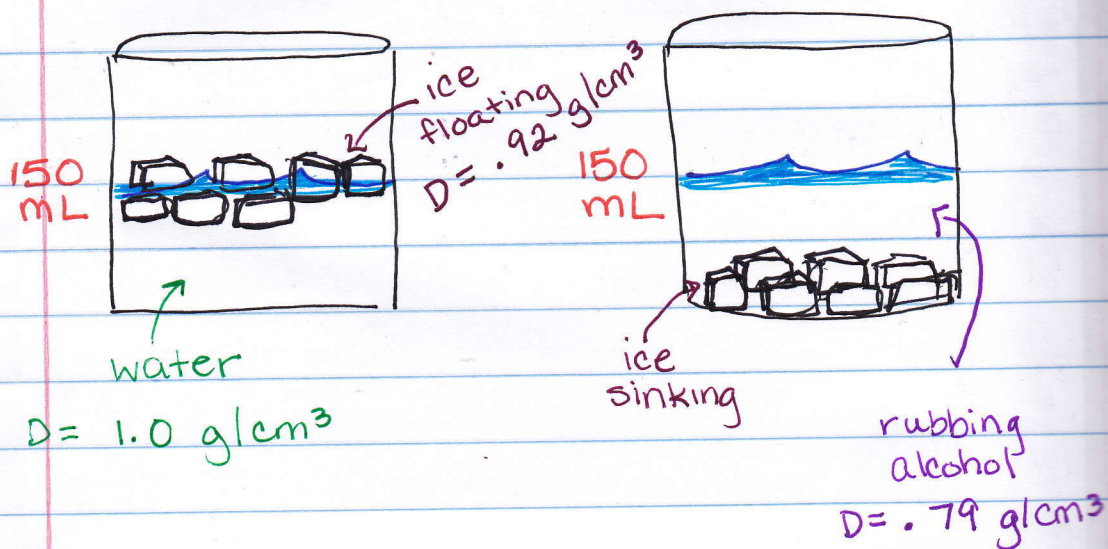 ice
floating
D= .92 g/cm³
150
mL
water
D= 1.0 g/cm³
150
mL
ice
sinking
rubbing
alcohol
D= .79 g/cm³